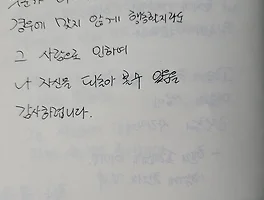 경우에 맞지 않게 행동할지라도
그 사람으로 인하여
나 자신을 되돌아 볼수 있음을
감사하렵니다.